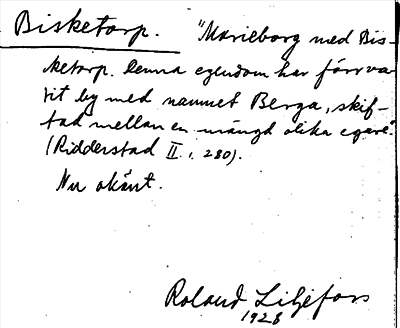 Bisketorp. "Marieborg med Bis-
ketorp. Denna egendom har förr va-
rit by med namnet Berga, skif-
tad mellan en mängd olika egare."
(Ridderstad II 1, 280).
Nu okänt.
Roland Liljefors
1928